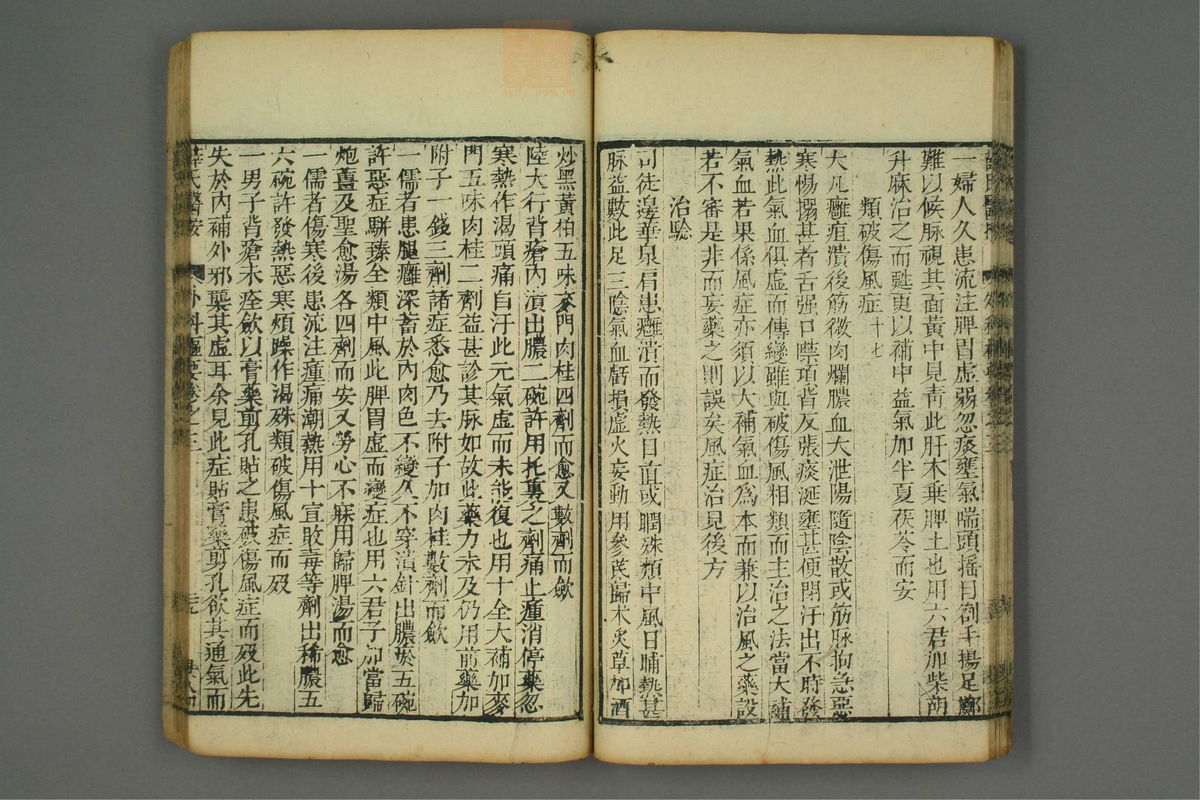 一婦人久患流注脾胃虛弱忽痰壅氣喘頭搖目劄手揚足擲
難以候脉視其面黃中見青此肝木乗脾土也用六君加柴胡
升麻治之而甦更以補中益氣加半夏茯苓而安
類破傷風症 十七
大凡癰疽潰後筋微肉爛膿血大泄陽隨陰散或筋脉拘急惡
寒惕搦甚者舌强口噤項背反張痰涎壅甚便閉汗出不時發
熱此氣血俱虛而傳變雖與破傷風相類而主治之法當大補
氣血若果係風症亦須以大補氣血爲本而兼以治風之藥設
若不審是非而妄藥之則誤矣風症治見後方
治驗
司徒邊華泉肩患癰潰而發熱目直或瞤殊類中風日晡熱甚
脉益數此足三陰氣血虧損虛火妄動用參芪歸术炙草加酒
炒黑黃柏五味麥門肉桂四劑而愈又數劑而斂
陸大行背瘡內潰出膿二碗許用托裏之劑痛止腫消停藥忽
寒熱作渴頭痛自汗此元氣虛而未能復也用十全大補加麥
門五味肉桂二劑益甚診其脉如故此藥力未及仍用前藥加
附子一錢三劑諸症悉愈乃去附子加肉桂數劑而斂
一儒者患腿癰深蓄於內肉色不變久不穿潰針出膿於五碗
許惡症騈臻全類中風此脾胃虛而變症也用六君子加當歸
炮薑及聖愈湯各四劑而安又勞心不寐用歸脾湯而愈
一儒者傷寒後患流注腫痛潮熱用十宣敗毒等劑出稀膿五
六碗許發熱惡寒煩躁作渴殊類破傷風症而歿
一男子背瘡未痊斂以膏藥剪孔貼之患破傷風症而歿此先
失於內補外邪襲其虛耳余見此症貼膏藥剪孔欲其通氣而
薛氏醫按 外科樞要卷之三